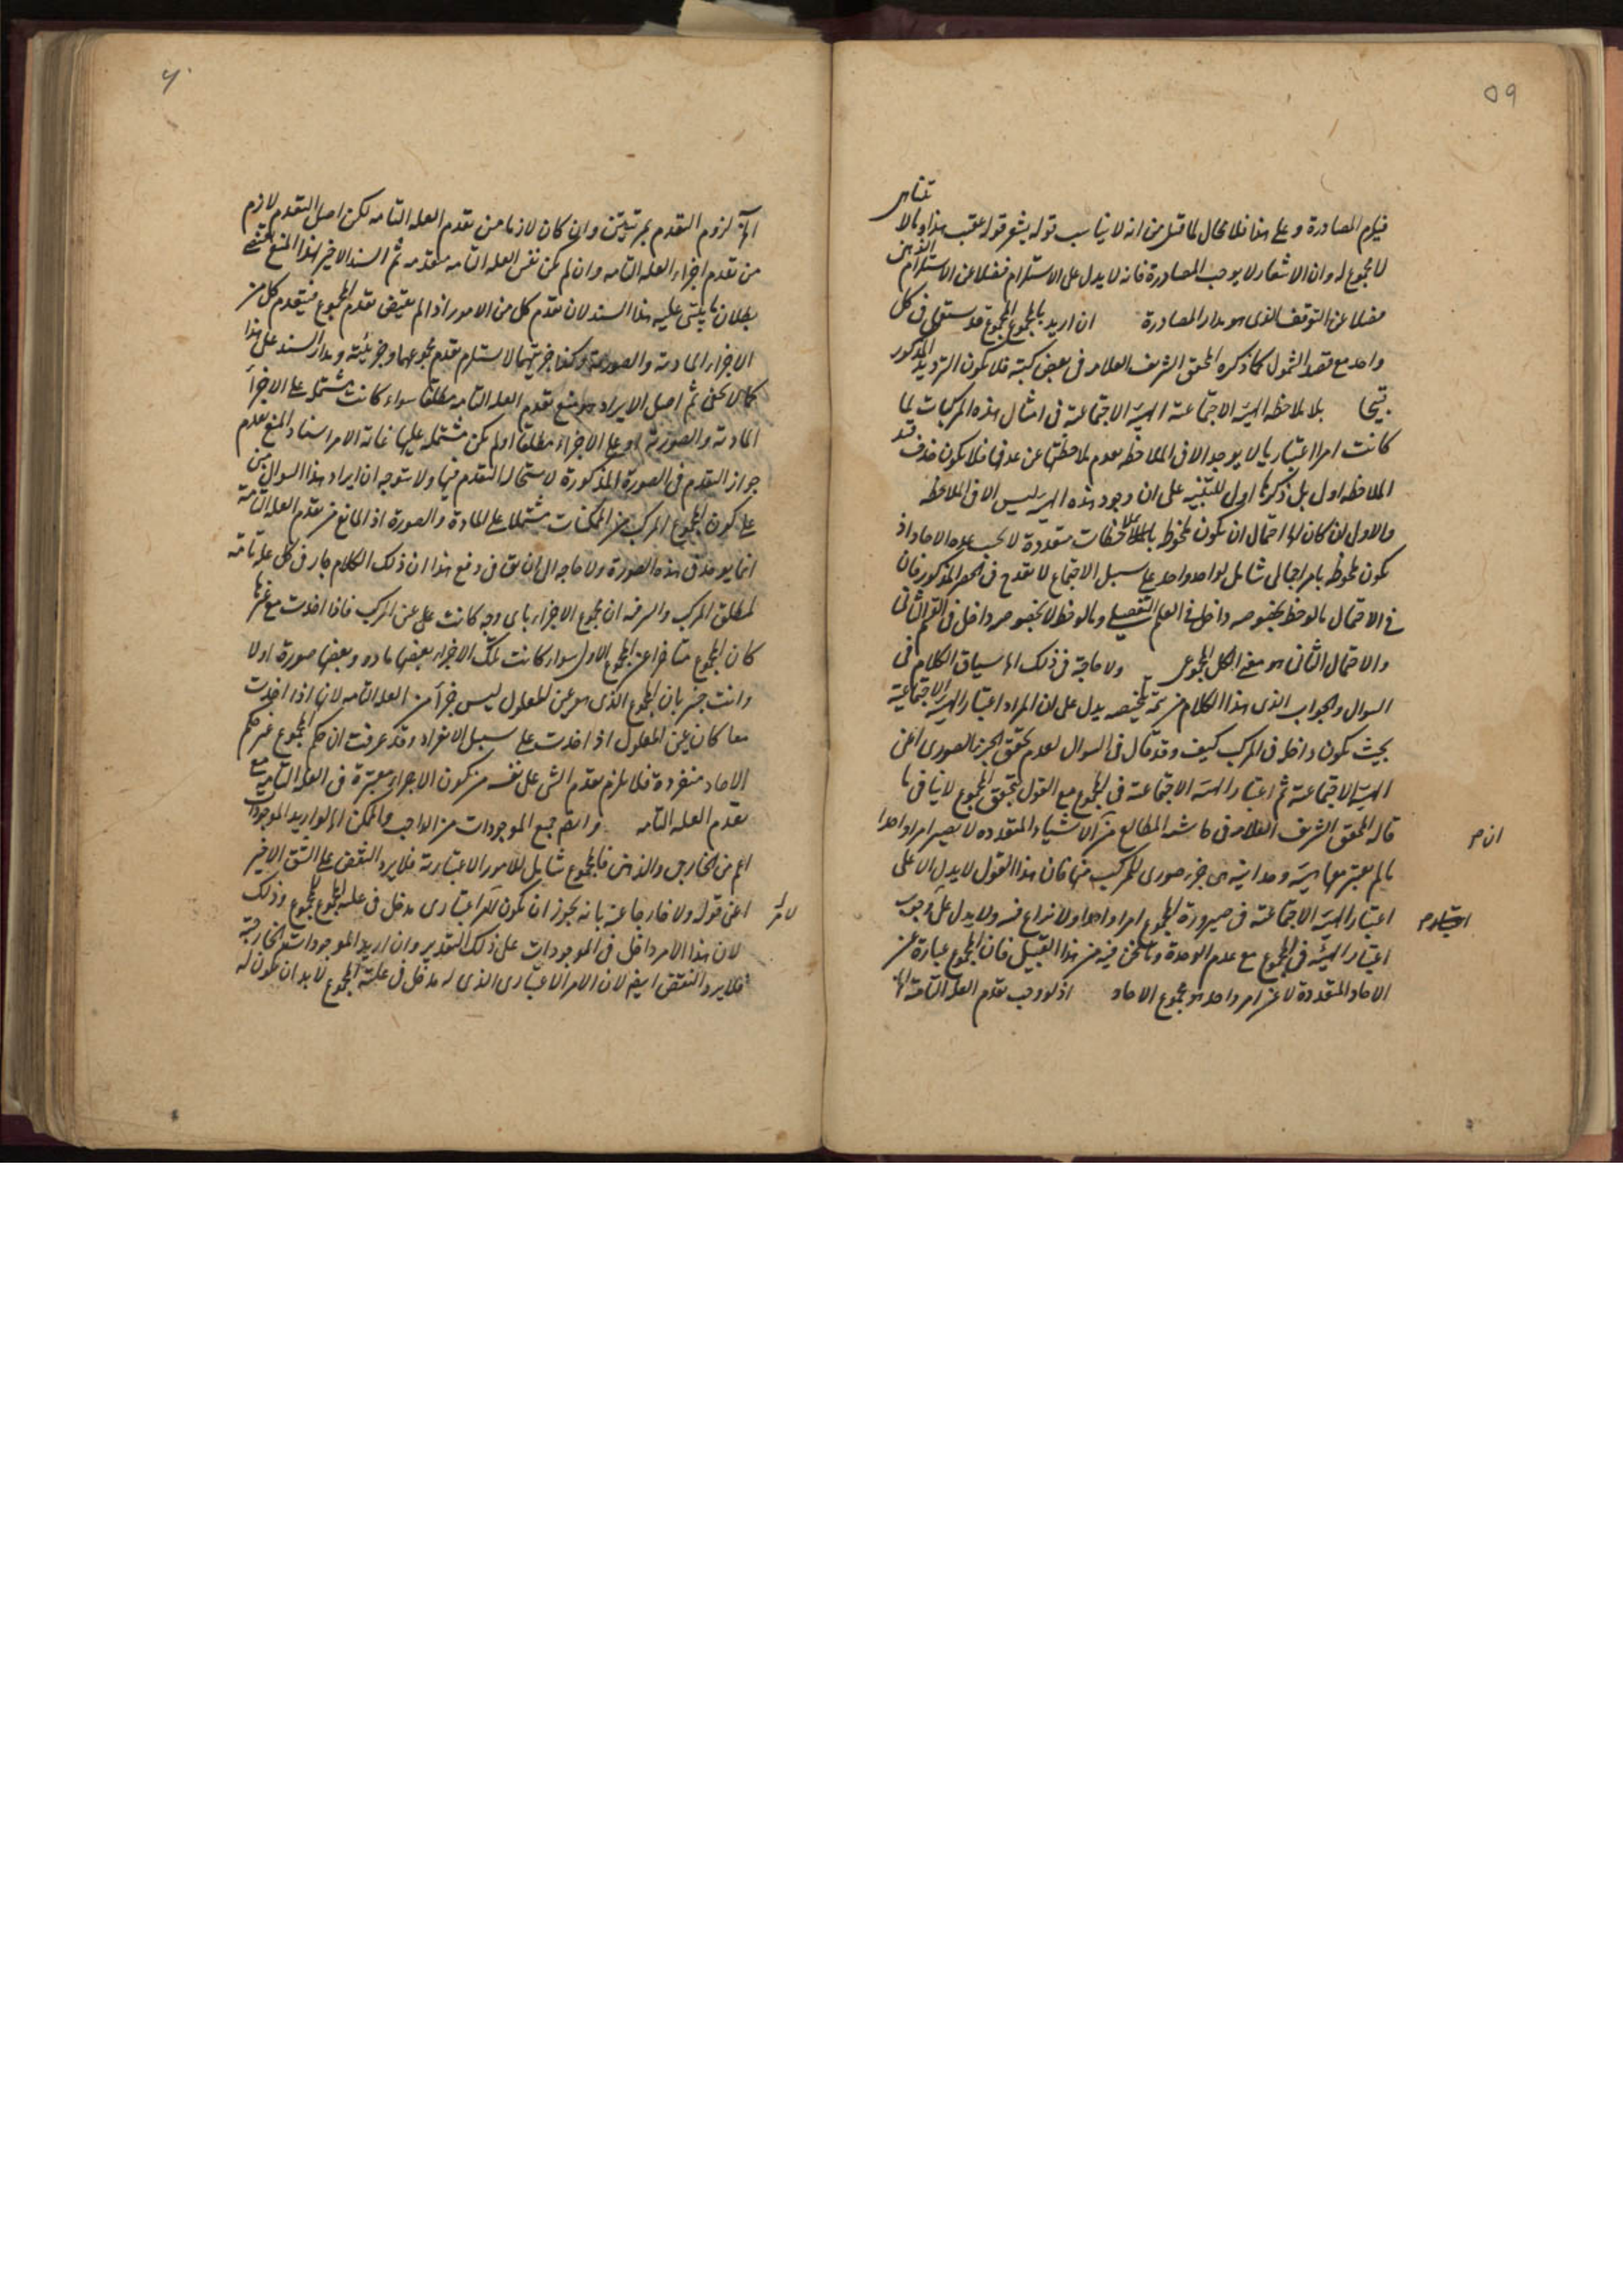 ٥٩
فيلزم المصادرة وعلى هذا فلا مجال لما قيل من انه لا يناسب قوله يشعر قوله عقيب هذا وما لا يتناهى
لا مجموع له وان الاشعار لا يوجب المصادرة فانه لا يدل على الاستلزام فضلا عن الاستلزام
فضلا عن التوقف الذى هو مدار المصادرة ان اريد بالمجموع المجموع قد يستعمل فى كل
واحد مع قصد الشمول كما ذكره المحقق الشريف العلامة فى بعض كتبه فلا يكون الترديد المذكور
قبيحا بلا ملاحظة الهيئة الاجتماعية الهيئة الاجتماعية فى امثال هذه المركبات لما
كانت امرا اعتباريا لا يوجد الا فى الملاحظة عدم ملاحظتها عن عدمها فلا يكون حذف قيد
الملاحظة اولى بل ذكرها اولى للتنبيه على ان وجود هذه الهيئة ليس الا فى الملاحظة
والاول لان كان له احتمال ان يكون ملحوظا بملاحظات متعددة لا بحسب عدة الاحاد اذ
يكون ملحوظا بامر اجمالى شامل لواحد واحد على سبيل الاجتماع لا يقدح فى الحصر المذكور فان
فى الاحتمال ما لوحظ بخصوصه داخل فى العلم التفصيلى وما لوحظ لا بخصوصه داخل فى القسم الثانى
والاحتمال الثانى هو معنى الكل المجموعى ولا حاجة فى ذلك الى سياق الكلام فى
السوال والجواب الذى هذا الكلام من تتمة تلخيصه يدل على ان المراد اعتبار الهيئة الاجتماعية
بحيث يكون داخلا فى المركب كيف وقد قال فى السوال لعدم تحقق الجزء الصورى اعنى
الهيئة الاجتماعية ثم اعتبار الهيئة الاجتماعية فى المجموع مع القول بتحقق المجموع لا ينافى ما
قاله المحقق الشريف العلامة فى حاشية المطالع من ان الاشياء المتعددة لا يصير امرا واحدا
ما لم يعتبر معها هيئة وحدانية هى جزء صورى للمركب منها فان هذا القول لا يدل الا على
اعتبار الهيئة الاجتماعية فى صيرورة المجموع امرا واحدا ولا نزاع فيه ولا يدل على وجوب
اعتبار الهيئة فى المجموع مع عدم الوحدة وما نحن فيه من هذا القبيل فان المجموع عبارة عن
الاحاد المتعددة لا عن امر واحد هو مجموع الاحاد اذ لو وجب تقدم العلة التامة الخ
٦٠
لزوم التقدم بمرتبتين وان كان لازما من تقدم العلة التامة لكن اصل التقدم لازم
من تقدم اجزاء العلة التامة وان لم يكن نفس العلة التامة متقدمة ثم السند الاخير لهذا المنع
بطلان ما يبتنى عليه هذا السند لان تقدم كل من الامور اذا لم يقتض تقدم المجموع فيتقدم كل من
الاجزاء المادية والصورية وكذا جزئيتهما لا يستلزم تقدم مجموعهما وجزئيته ومدار السند على هذا
كما لا يخفى ثم اصل الايراد هو منع تقدم العلة التامة مطلقا سواء كانت مشتملة على الاجزاء
المادية والصورية او على الاجزاء مطلقا او لم يكن مشتملة عليها غاية الامر اسناد المنع بعدم
جواز التقدم فى الصورة المذكورة لاستحالة التقدم فيها ولا يتوجه ان ايراد هذا السوال مبنى
على كون المجموع المركب من الممكنات مشتملا على المادة والصورة اذ المانع من تقدم العلة التامة
انما يوجد فى هذه الصورة ولا حاجة الى ان يق فى دفع هذا ان ذلك الكلام جار فى كل علة تامة
لمطلق المركب والسر فيه ان مجموع الاجزاء باى وجه كانت على عين المركب فاذا اخذت مع غيرها
كان المجموع متاخرا عن المجموع الاول سواء كانت تلك الاجزاء بعضها مادة وبعضها صورة او لا
وانت خبير بان المجموع الذى هو عين المعلول ليس جزأ من العلة التامة لانها اذا اخذت
معا كان عين المعلول اذا اخذت على سبيل الانفراد وقد عرفت ان حكم المجموع غير حكم
الاحاد منفردة فلا يلزم تقدم الشى على نفسه من كون الاجزاء معتبرة فى العلة التامة مع
تقدم العلة التامة وايضا جميع الموجودات من الواجب والممكن الخ لو اريد الموجودات
اعم من الخارجى والذهنى فالمجموع شامل للامور الاعتبارية فلا يرد النقض على الشق الاخير
اعنى قوله ولا خارجا عنه بانه يجوز ان يكون لامر اعتبارى مدخل فى علية المجموع للمجموع وذلك
لان هذا الامر داخل فى الموجودات على ذلك التقدير وان اريد الموجودات الخارجية
فلا يرد النقض ايضا لان الامر الاعتبارى الذى له مدخل فى علية المجموع لا بد ان يكون له